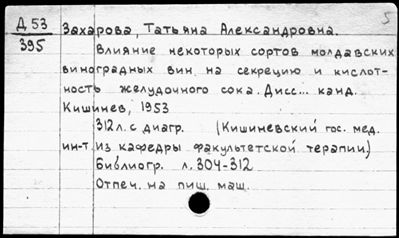 Д 53
395
5
Захарова, Татьяна Александровна.
Влияние некоторых сортов молдавских
виноградных вин на секрецию и кислот-
ность желудочного сока. Дисс... канд.
Кишинев, 1953
312 л. с диагр. (Кишиневский гос. мед.
ин-т. Из кафедры факультетской терапии.)
Библиогр. л. 304-312
Отпеч. на пиш. маш.